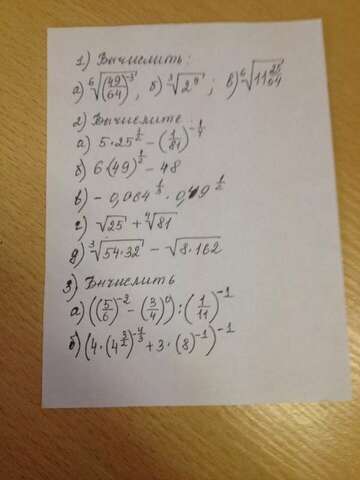 1) Вычислить:
а) ⁶√(49/64)⁻³, б) ³√2⁹; в) ⁶√11
2) Вычислите:
а) 5·25^(1/2) − (1/81)^(-1/4)
б) 6·(49)^(1/2) − 48
в) − 0,064^(1/3) · 0,49^(1/2)
г) √25 + ⁴√81
д) ³√54·32 − √8·162
3) Вычислить
а) ((5/6)⁻² − (3/4)⁰) : (1/11)⁻¹
б) (4·(4^(3/2))^(-4/3) + 3·(8)⁻¹)⁻¹